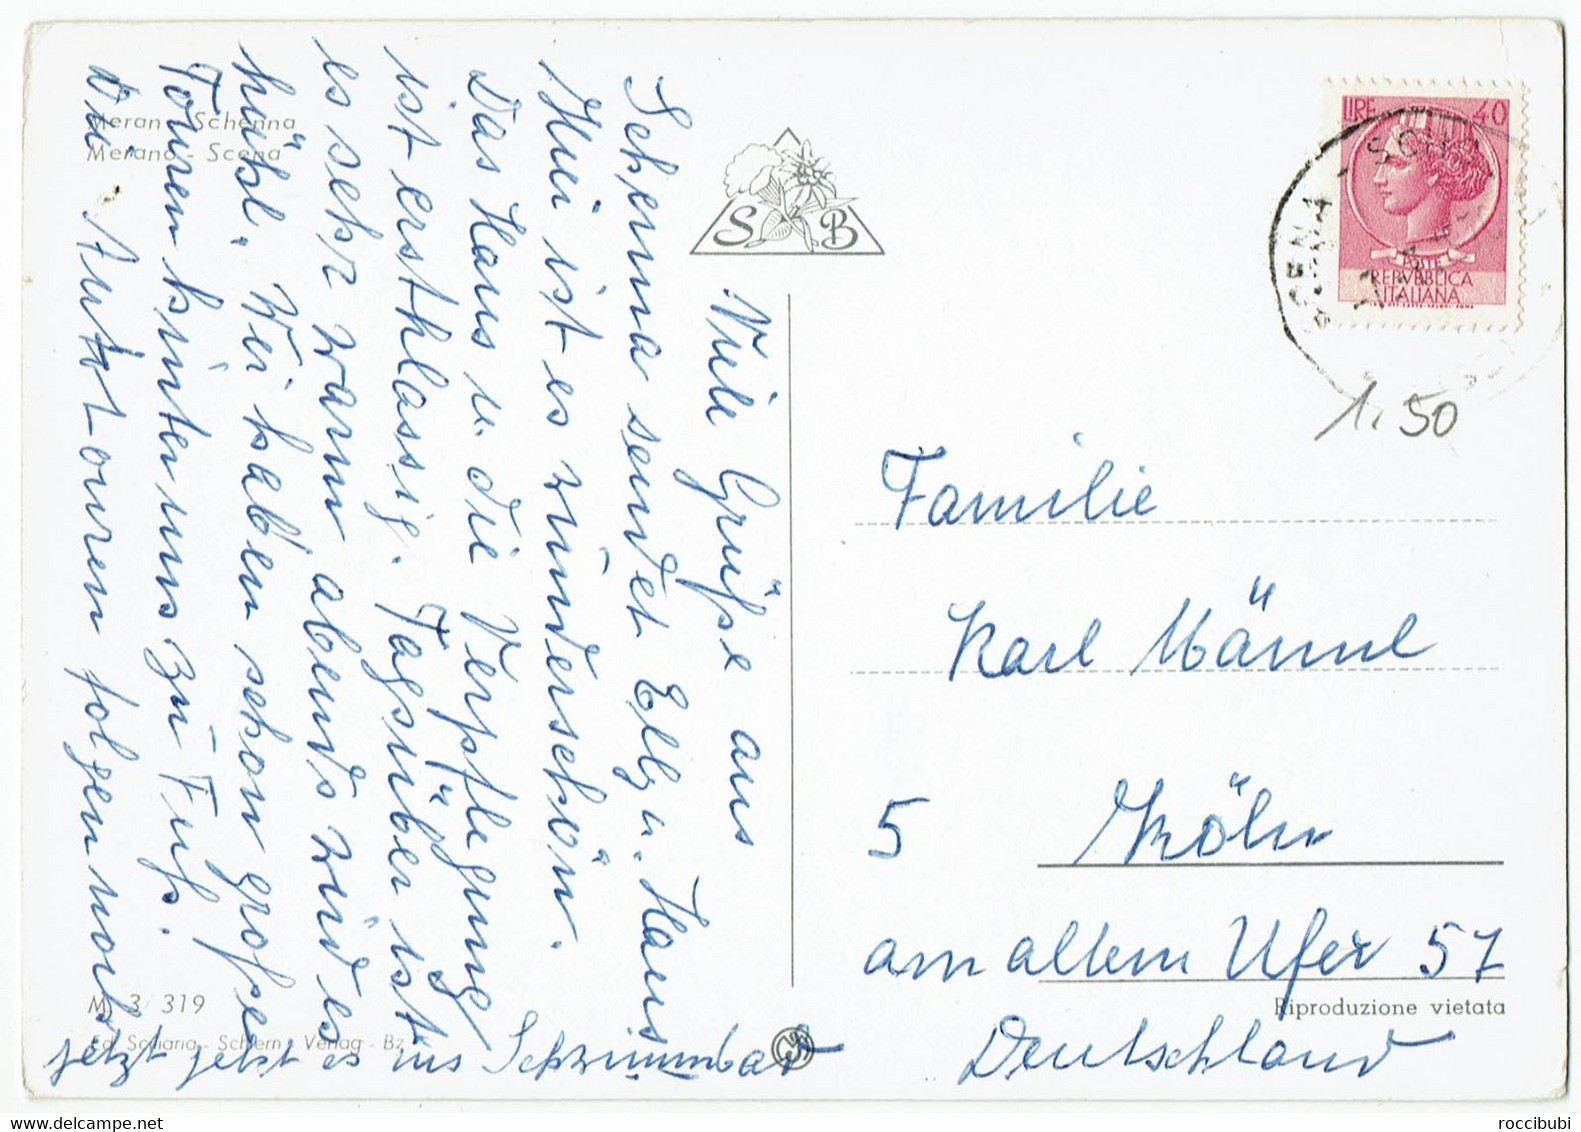 Meran - Schenna
Merano - Scena
S B
LIRE 40
POSTE
REPVBBLICA
ITALIANA
SCENA
1.50
Viele Grüße aus
Schenna sendet Elly u. Hans
Hier ist es wunderschön.
Das Haus u. die Verpflegung
ist erstklassig. Tagsüber ist
es sehr warm abends wird es
kühl. Wir haben schon große
Touren hinter uns zu Fuß.
Die Autotouren folgen noch
jetzt geht es ins Schwimmbad
Familie
Karl Männl
5 Köln
am alten Ufer 57
Deutschland
M 3/319
Ed. Sciliaria - Schlern - Verlag - Bz
Riproduzione vietata
roccibubi